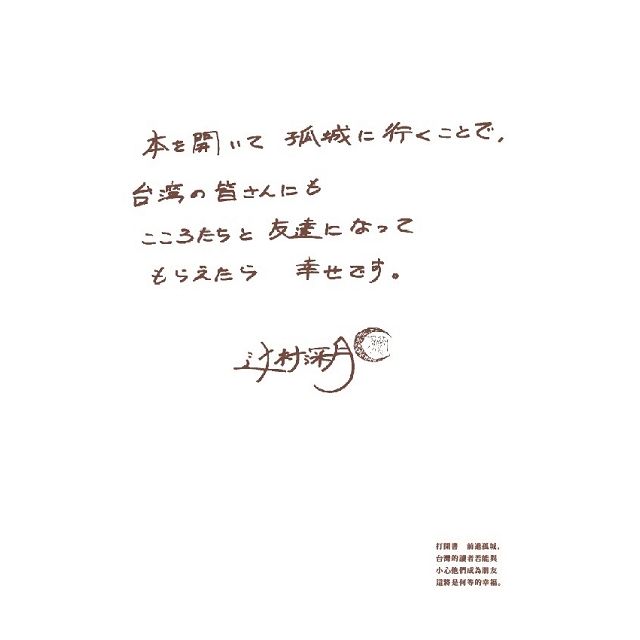 本を開いて 孤城に行くことで,
台湾の皆さんにも
こころたちと友達になって
もらえたら 幸せです。
辻村深月
打開書 前進孤城,
台灣的讀者若能與
小心他們成為朋友
這將是何等的幸福。